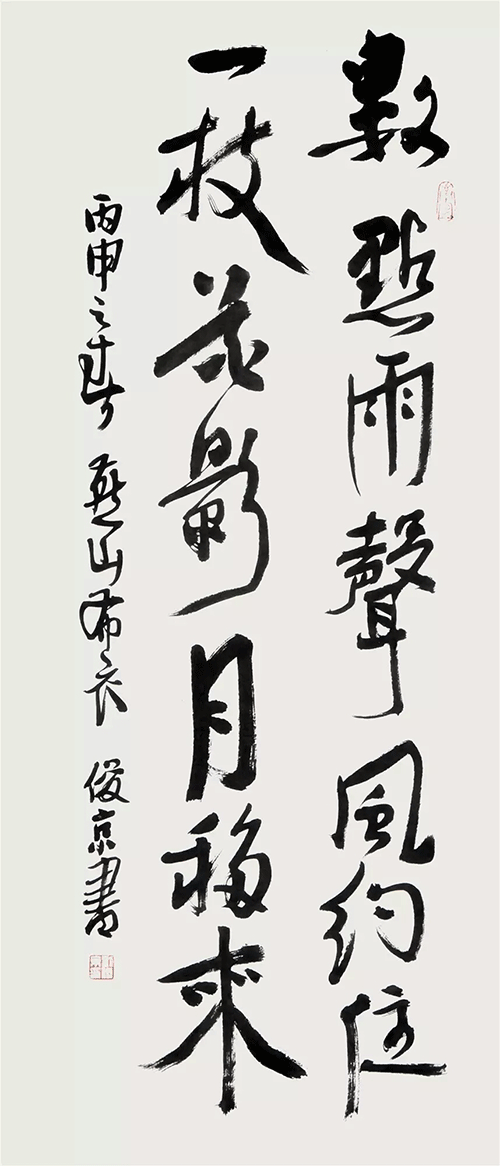 數點雨聲風約住
一枝花影月移來
丙申之春 燕山布衣 俊京書